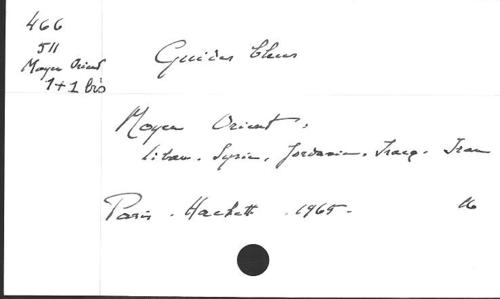 466
511
Moyen Orient
1+1 bis
Guides bleus
Moyen Orient,
Liban. Syrie. Jordanie. Iraq. Iran
Paris. Hachette. 1965.
16